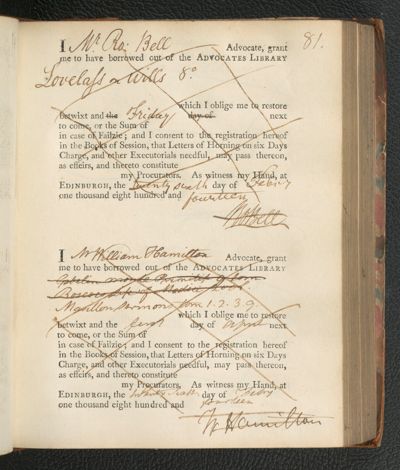 81.
I Mr Ro: Bell Advocate, grant
me to have borrowed out of the ADVOCATES LIBRARY
Lovelass on Wills 8°
which I oblige me to restore
betwixt and the Friday day of next
to come, or the Sum of
in case of Failzie; and I consent to the registration hereof
in the Books of Session, that Letters of Horning on six Days
Charge, and other Executorials needful, may pass thereon,
as effeirs, and thereto constitute
my Procurators. As witness my Hand, at
EDINBURGH, the twenty sixth day of Febry
one thousand eight hundred and fourteen
Ro Bell
I Mr William Hamilton Advocate, grant
me to have borrowed out of the ADVOCATES LIBRARY
Massillon Sermons tom 1. 2. 3. 9
which I oblige me to restore
betwixt and the first day of April next
to come, or the Sum of
in case of Failzie; and I consent to the registration hereof
in the Books of Session, that Letters of Horning on six Days
Charge, and other Executorials needful, may pass thereon,
as effeirs, and thereto constitute
my Procurators. As witness my Hand, at
EDINBURGH, the twenty sixth day of Febry
one thousand eight hundred and fourteen
W Hamilton